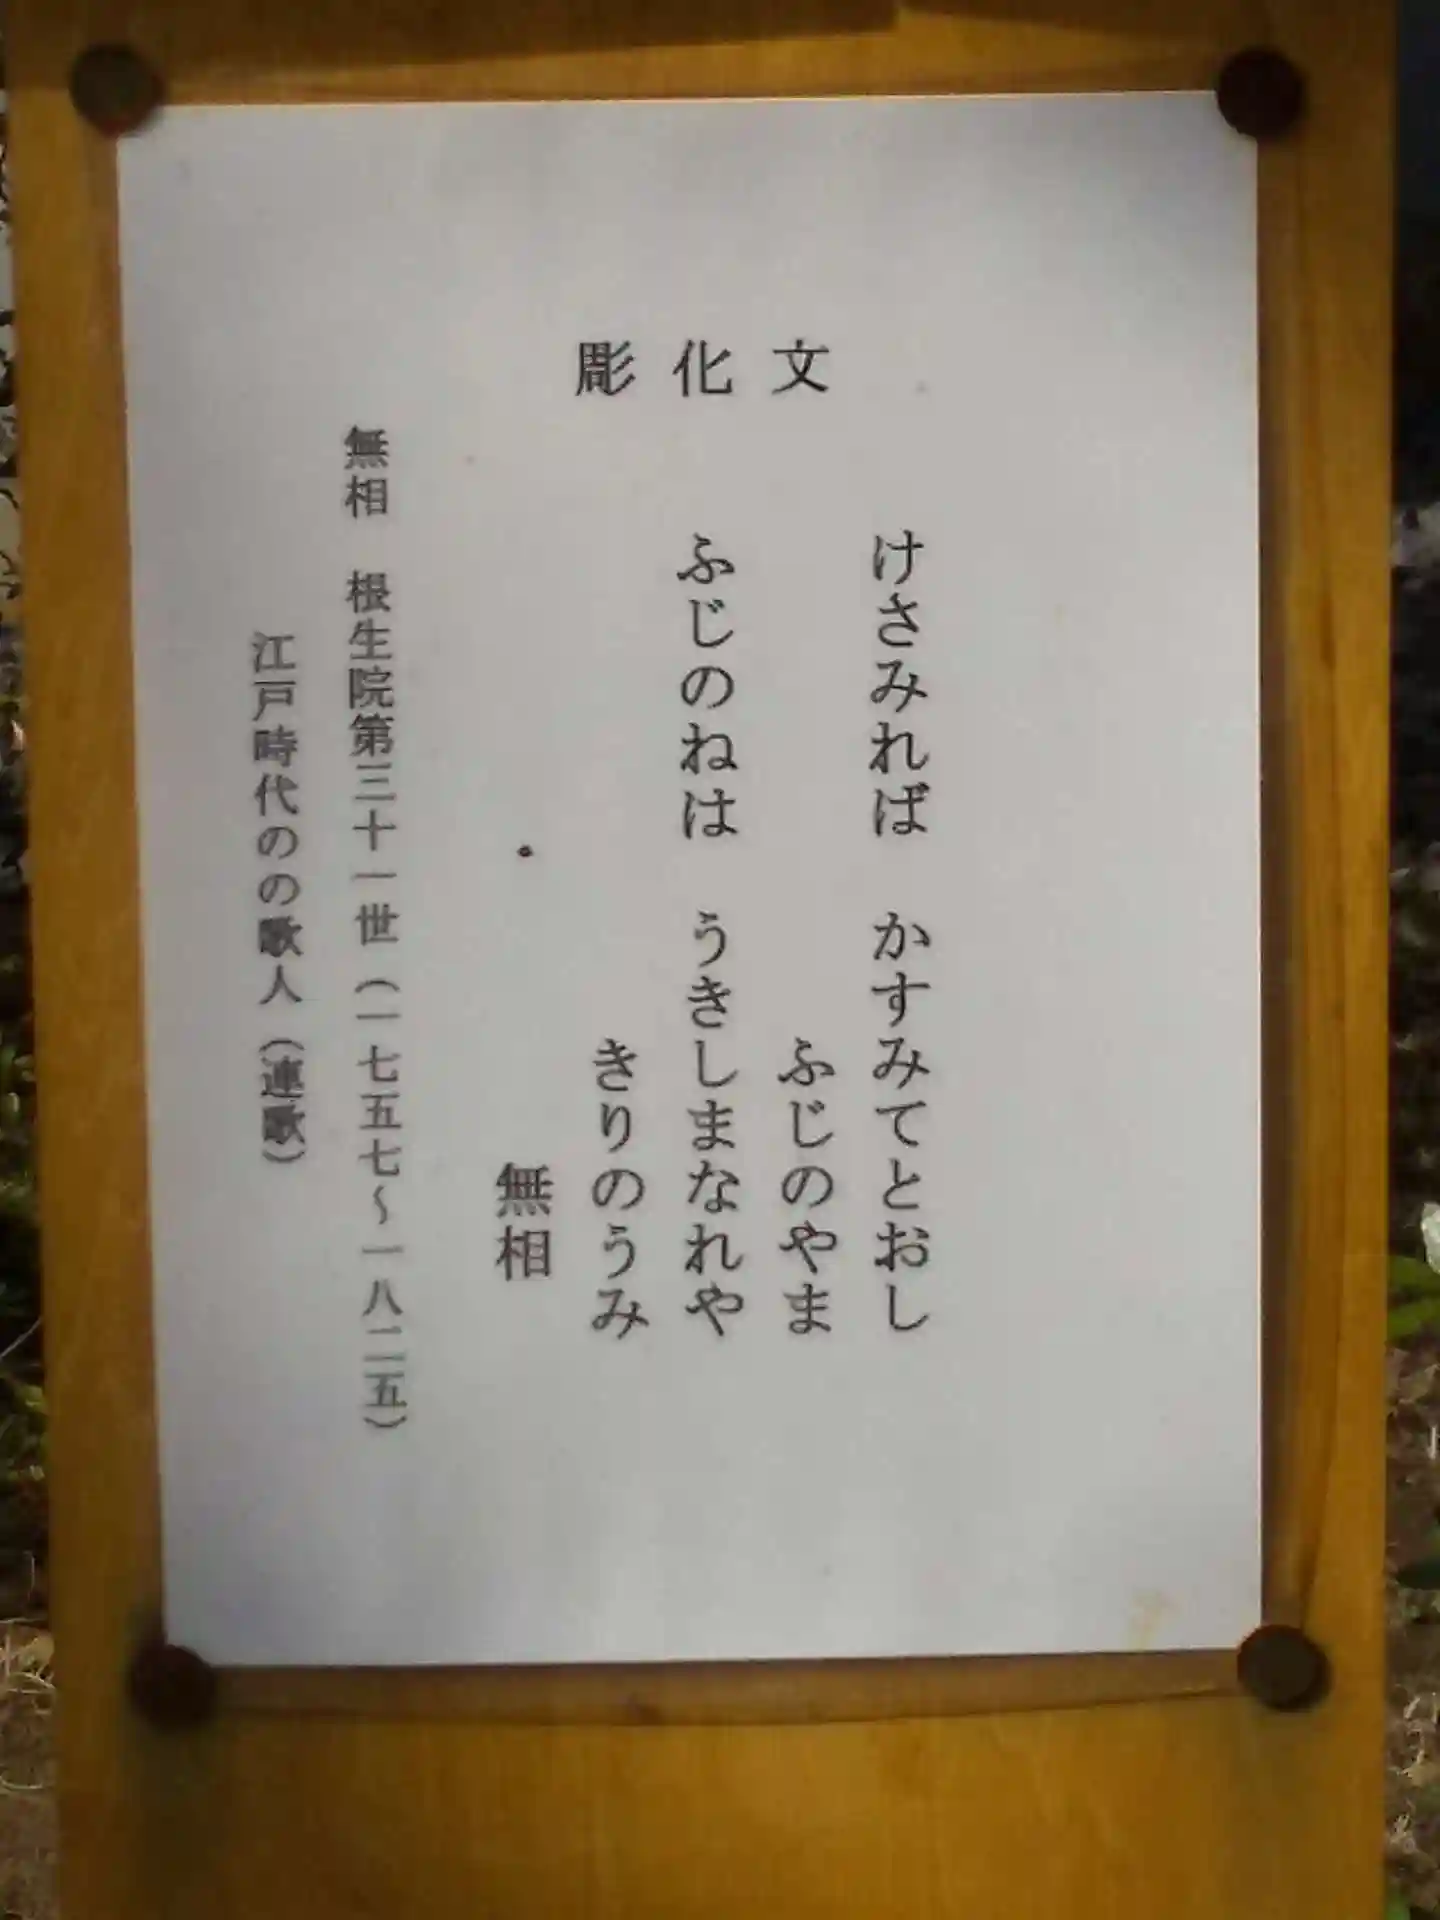 彫化文
けさみれば　かすみてとおし
ふじのやま
ふじのねは　うきしまなれや
きりのうみ
無相
無相　根生院第三十一世（一七五七〜一八二五）
江戸時代のの歌人（連歌）